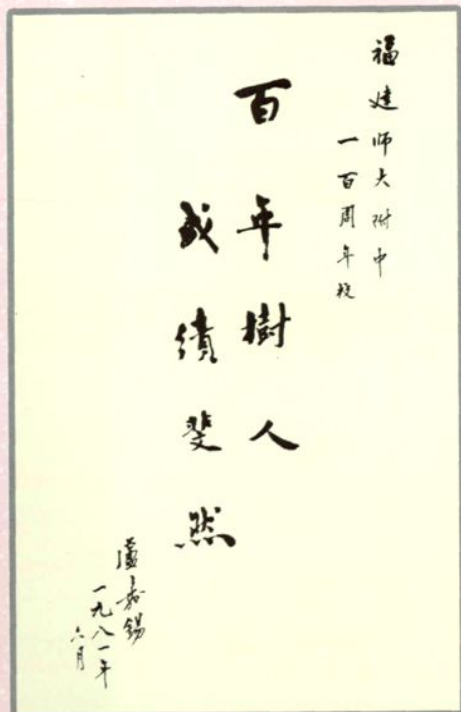 福建师大附中
一百周年校
百年樹人
成绩斐然
盧嘉錫
一九八一年
六月